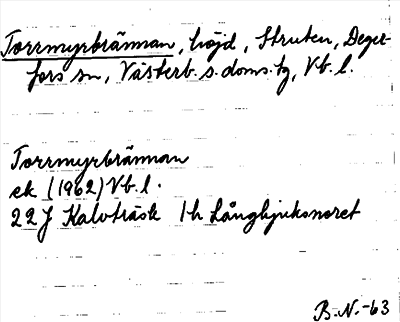 Torrmyrbrännan, höjd, Struten, Deger-
fors sn, Västerb. s. doms. tg, Vb. l.
Torrmyrbrännan
ek (1962) Vb. l.
22 J Kalvträsk 1 h Långbjuksnoret
B.N.-63